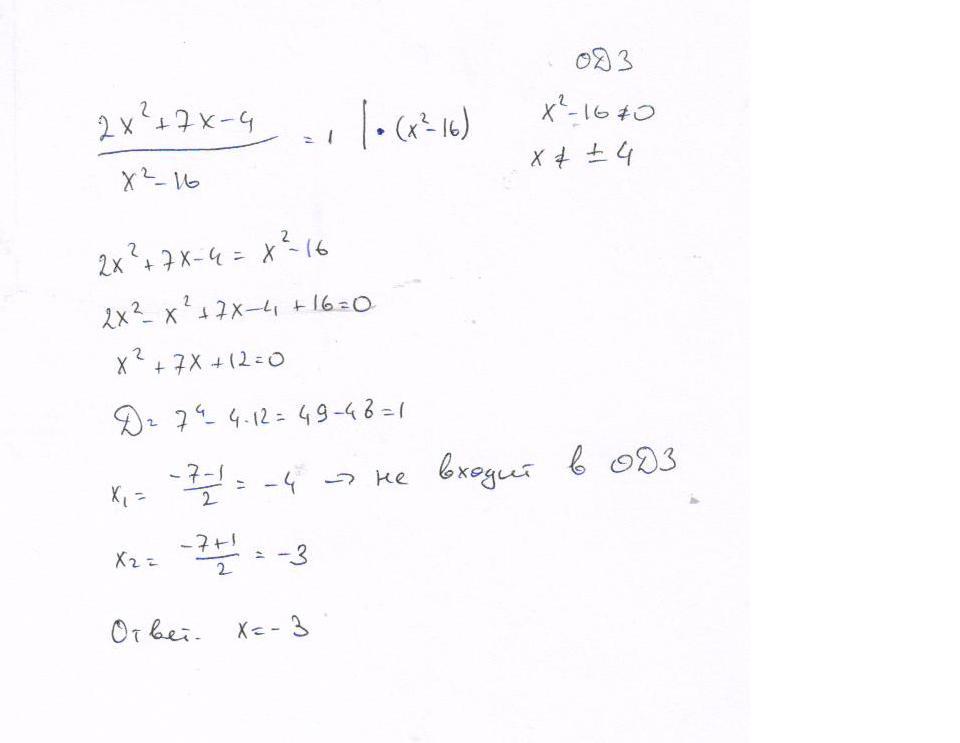 ОДЗ
(2x²+7x-4)/(x²-16) = 1 | • (x²-16)
x²-16≠0
x ≠ ± 4
2x²+7x-4 = x²-16
2x²-x²+7x-4+16=0
x²+7x+12=0
D= 7⁴- 4·12= 49-48=1
x₁= (-7-1)/2 = -4 → не входит в ОДЗ
x₂= (-7+1)/2 = -3
Ответ. x=-3